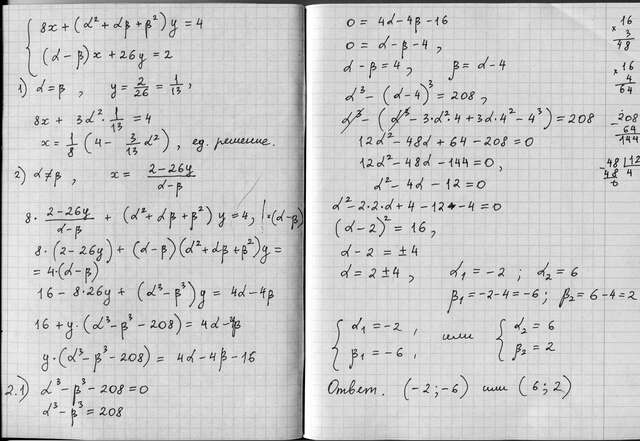 8x + (α² + αβ + β²) y = 4
(α - β) x + 26y = 2
1) α = β , y = 2/26 = 1/13 ,
8x + 3α² · 1/13 = 4
x = 1/8 (4 - 3/13 α²) , ед. решение.
2) α ≠ β , x = (2 - 26y)/(α - β)
8 · (2 - 26y)/(α - β) + (α² + αβ + β²) y = 4, | · (α - β)
8 · (2 - 26y) + (α - β)(α² + αβ + β²) y =
= 4 · (α - β)
16 - 8·26y + (α³ - β³) y = 4α - 4β
16 + y · (α³ - β³ - 208) = 4α - 4β
y · (α³ - β³ - 208) = 4α - 4β - 16
2.1) α³ - β³ - 208 = 0
α³ - β³ = 208
0 = 4α - 4β - 16
0 = α - β - 4 ,
α - β = 4 , β = α - 4
α³ - (α - 4)³ = 208 ,
α³ - (α³ - 3·α²·4 + 3α·4² - 4³) = 208
12α² - 48α + 64 - 208 = 0
12α² - 48α - 144 = 0 ,
α² - 4α - 12 = 0
α² - 2·2·α + 4 - 12 - 4 = 0
(α - 2)² = 16 ,
α - 2 = ±4
α = 2 ± 4 , α₁ = -2 ; α₂ = 6
β₁ = -2 - 4 = -6 ; β₂ = 6 - 4 = 2
α₁ = -2 , или α₂ = 6
β₁ = -6 , β₂ = 2
Ответ. (-2 ; -6) или (6 ; 2)
16
× 3
48
16
× 4
64
208
- 64
144
48 | 12
- 48 4
0